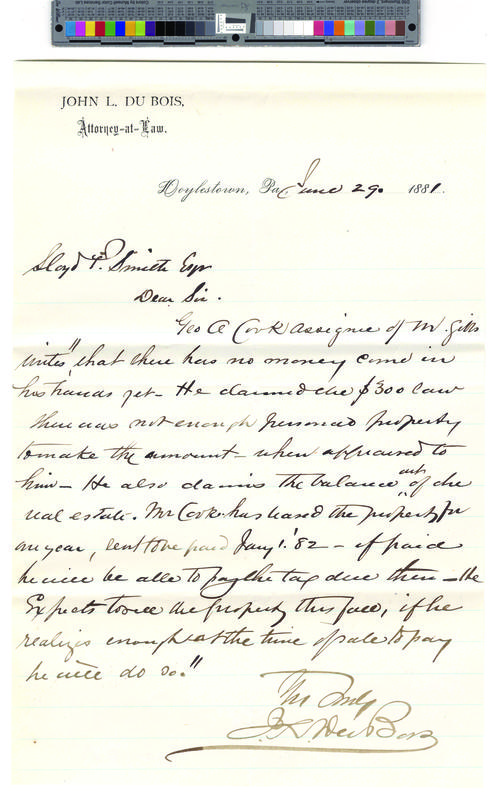 JOHN L. DU BOIS,
Attorney-at-Law.
Doylestown, Pa., June 29 1881.
Lloyd P. Smith Esqr
Dear Sir.
Geo A Cook assignee of W. Gibbs
writes "that there has no money come in
his hands yet - He claimed the $300 law
there was not enough personal property
to make the amount - when appraised to
him - He also claims the balance out of the
real estate. Mr Cook has leased the property for
one year, rent to be paid Jany 1. '82 - if paid
he will be able to pay the tax due then - He
Expects to sell the property this fall, if he
realizes enough at the time of sale to pay
he will do so."
Yrs truly
J. L. Du Bois